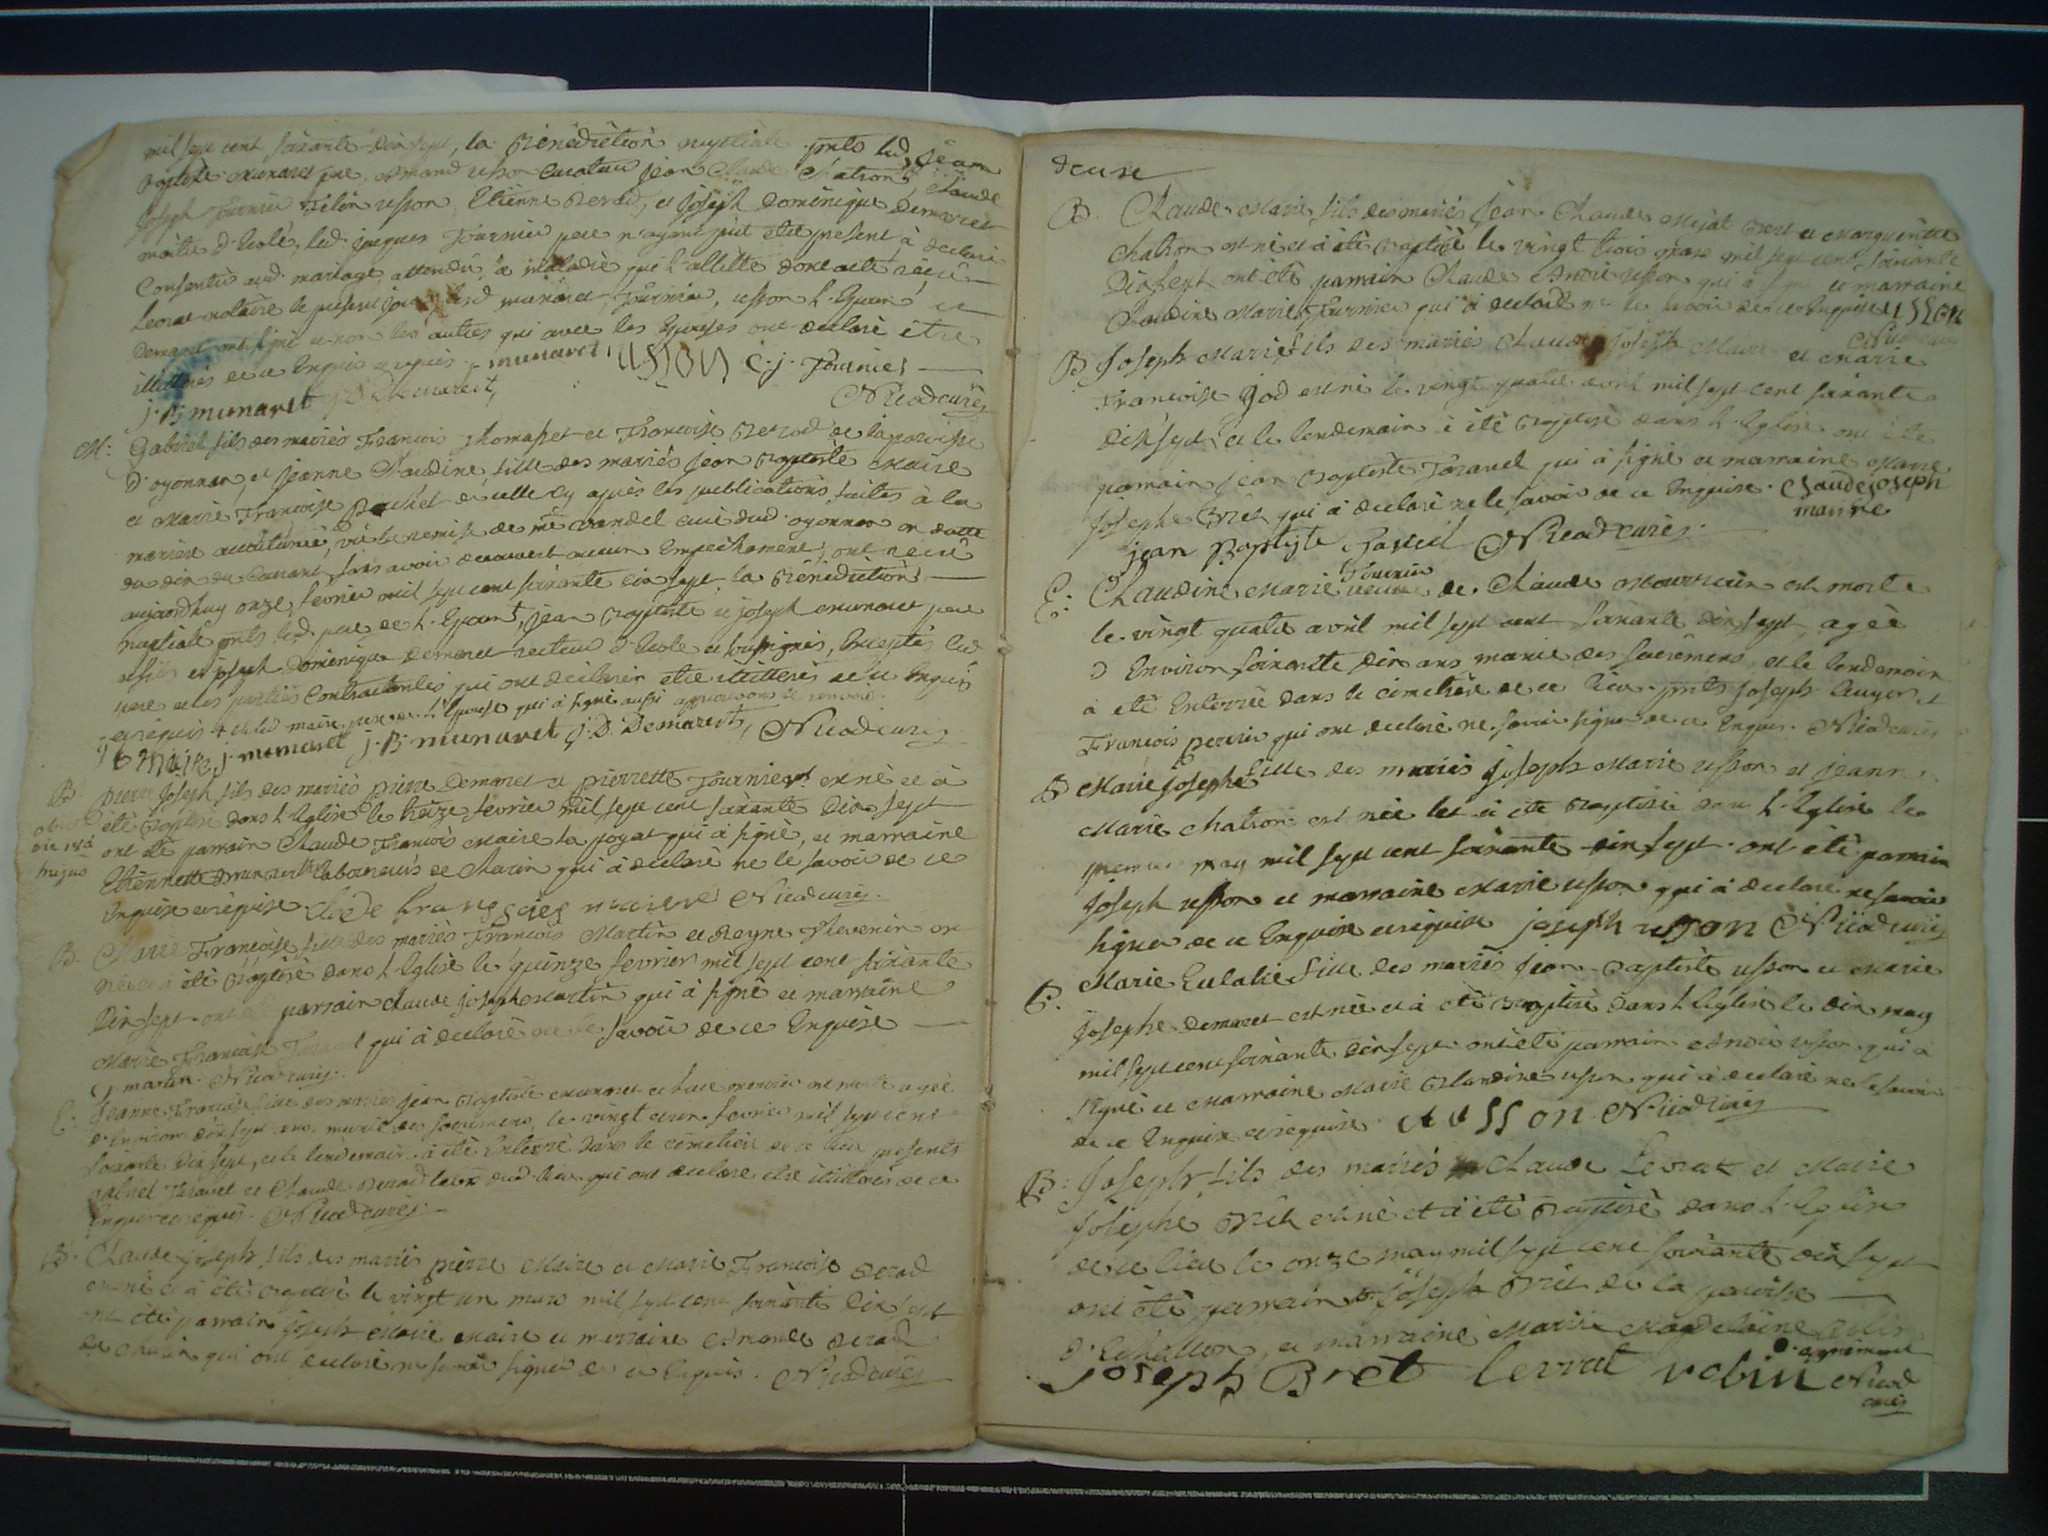 mil sept cent soixante dix sept, la Bénédiction nuptiale pnts led. jean
Baptiste munaret pere, Armand usson Curateur jean Claude Chatron, Claude
joseph Fournier Felin usson, Etienne Berad, et Joseph Dominique Demaret
maitre d'Ecole, led. jacques Fournier pere n'ayant put etre present à
Consentir aud. mariage, attendu la maladie qui l'allitte dont acte reçu
Levrat notaire le present jour lesd munaret, Fournier, usson L'Epoux et
Demaret ont signé et non les autres qui avec les Epouses ont declaré être
illitterés de ce Enquis et requis. munaret, USSON C. j. Fournier
j. B munaret j D Demarest, Nicod curé
M: Gabriel fils des mariés François Thomasset et Françoise Berrod de la paroisse
d'oyonnax, et jeanne Claudine fille des mariés jean Baptiste Maire
et Marie Françoise pochet de celle cy après les publications faites à la
maniere accoutumée, vû la remise de mre vandel curé dud. oyonnax en datte
du dix du Courant, sans avoir decouvert aucun Empechement, ont reçu
aujourdhuy onze fevrier mil sept cent soixante dix sept la Bénédiction
nuptiale pnts led. pere de L'Epoux, jean Baptiste et joseph munaret pere
et fils et joseph Dominique Demaret recteur d'Ecole et soussignés, Exceptés led
pere et les parties Contractantes qui ont declarer etre illitterés de ce Enquis
et requis et led. maire pere de L'Epouse qui à signé aussi approuvons le renvoy.
J B Maire, j. munaret j. B. munaret j. D. Demarest, Nicod curé
B pierre joseph fils des mariés pierre Demaret et pierrette Fournier est né et à
été Baptisé dans L'Eglise le treize fevrier mil sept cent soixante Dix sept
ont été parrain Claude François Maire La joyat qui à signé, et marraine
Etiennette munaret laboureurs de Charix qui à declaré ne le savoir de ce
Enquise et requise Clode françoies maire Nicod curé.
B. Marie Françoise fille des mariés François Martin et Reyne Thevenin est
née et à été Baptisé dans L'Eglise le quinze fevrier mil sept cent soixante
Dix sept ont été parrain claude joseph Martin qui à signé et marraine
Marie Françoise qui à declaré ne le savoir de ce Enquise
C j martin. Nicod curé.
E. Jeanne Françoise fille des mariés jean Baptiste munaret et est morte agée
d'environ dix sept ans, munie des sacremens, le vingt deux fevrier mil sept cent
soixante dix sept, et le lendemain à été Enterré dans le cimetiere de ce lieu presents
gabriel Tavaret et Claude Berrod tous deux dud. lieu qui ont declaré etre illitterés de ce
Enquis et requis. Nicod curé.
B. Claude joseph fils des mariés pierre Maire et Marie Françoise Berad
est né et à été Baptisé le vingt un mars mil sept cent soixante Dix sept
ont été parrain joseph Marie Maire et marraine Armande Berad
de Charix qui ont declaré ne savoir signer de ce Enquis. Nicod curé
deuxe
B. Claude Marie fils des mariés Jean Claude Mejat Bret et Marguerite
Chatron est né et à été Baptisé le vingt trois mars mil sept cent soixante
Dix sept ont été parrain Claude André usson qui à signé et marraine
Claudine Marie Fournier qui à declaré ne le savoir de ce Enquise USSON
Nicod curé
B Joseph Marie fils des mariés Claude joseph Maire et Marie
Françoise God est né le vingt quatre avril mil sept cent soixante
dix sept, et le lendemain à été Baptisé dans L'Eglise ont été
parrain jean Baptiste Tavanel qui à signé et marraine Marie
Josephe Bret qui à declaré ne le savoir de ce Enquise. Claude joseph
maire
jean Baptiste Nicod curé.
E: Claudine Marie Fournier veuve de Claude est morte
le vingt quatre avril mil sept cent soixante dix sept, agée
d'Environ soixante dix ans munie des sacremens, et le lendemain
à été Enterrée dans le cimetiere de ce lieu pnts joseph Auger et
François perrin qui ont declaré ne savoir signer de ce Enquis. Nicod curé
B Marie Josephe fille des mariés Joseph Marie usson et jeanne
Marie Chatron est née et à été Baptisée dans L'Eglise le
premier may mil sept cent soixante dix sept. ont été parrain
Joseph usson et marraine Marie usson qui à declaré ne savoir
signer de ce Enquise et requise joseph usson Nicod curé
B. Marie Eulalie fille des mariés Jean Baptiste usson et Marie
Josephe Demaret est née et à été Baptisé dans L'Eglise le dix may
mil sept cent soixante dix sept ont été parrain André usson qui à
signé et Marraine Marie Claudine usson qui à declaré ne le savoir
de ce Enquise et requise. A USSON Nicod curé
B: Joseph fils des mariés Claude Levrat et Marie
Josephe Bret est né et à été Baptisé dans L'Eglise
de ce lieu le onze may mil sept cent soixante dix sept
ont été parrain Joseph Bret de la paroisse
d'Echallon, et marraine Marie Magdelaine
joseph Bret levrat robin Nicod
curé